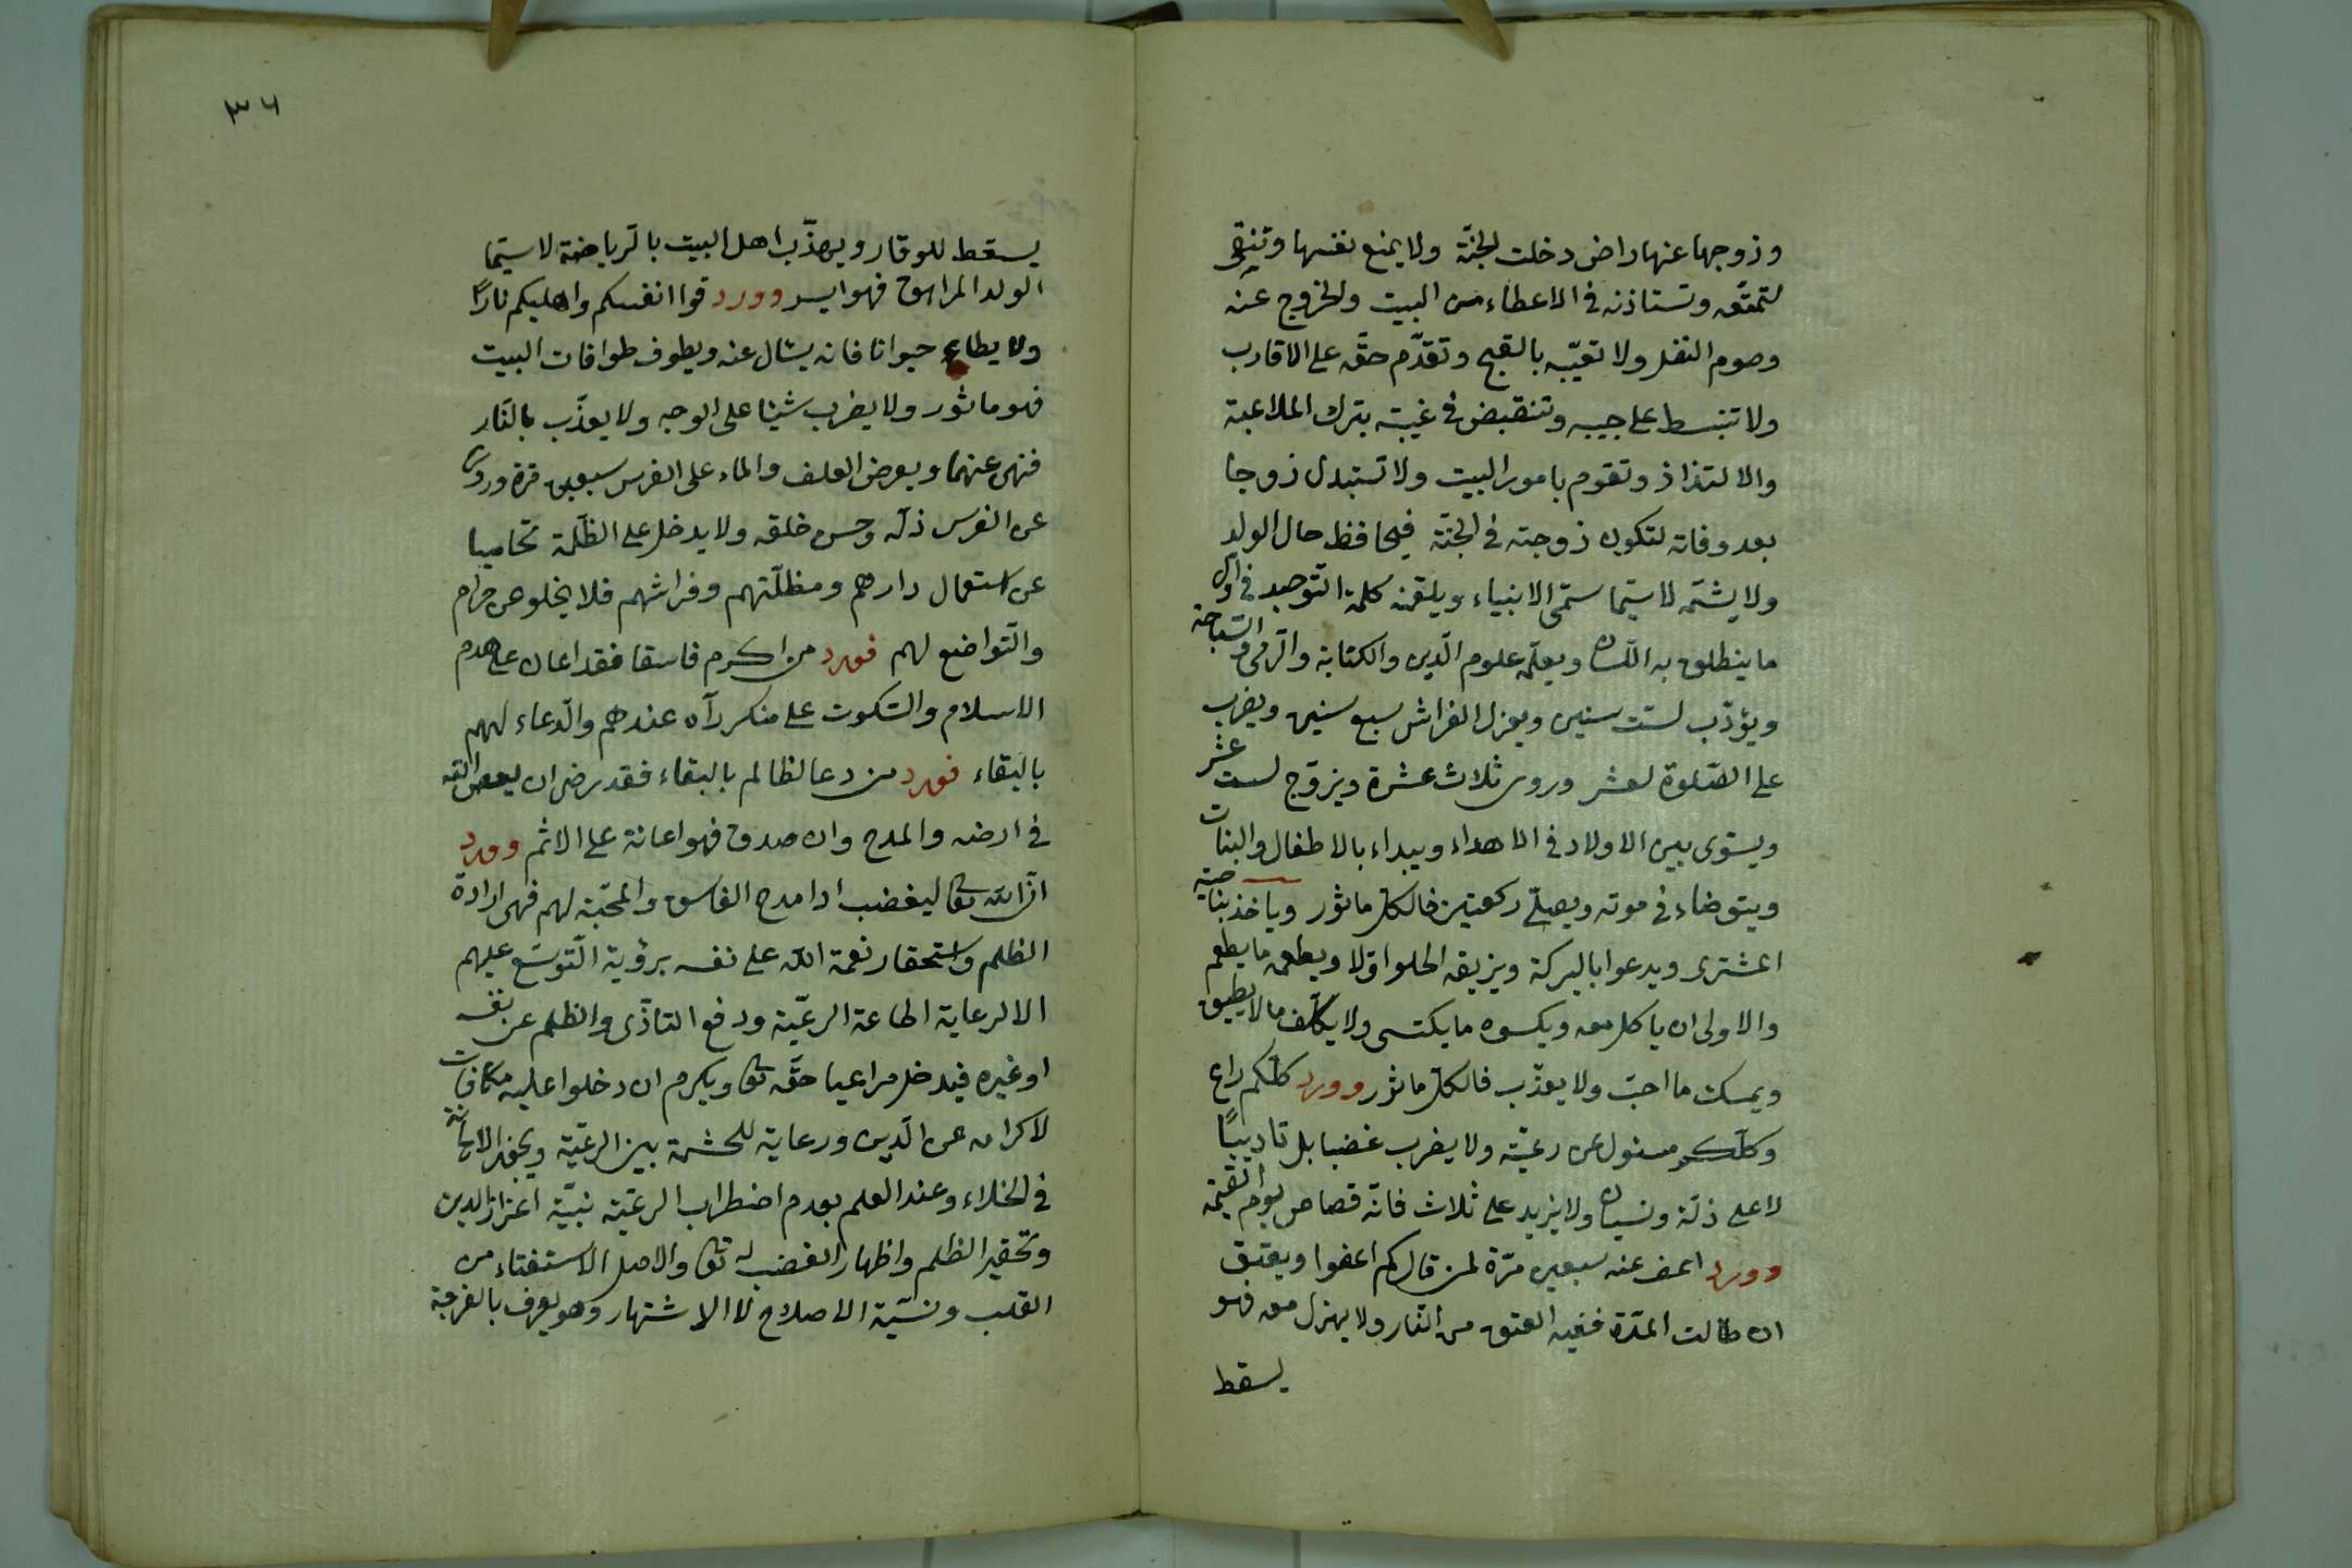 وزوجها عنها راض دخلت الجنّة ولا يمنع نفسها وتنقى
لتمتّعه وتستاذنه فى الاعطاء من البيت والخروج عنه
وصوم النفل ولا تعيّبه بالقبح وتقدّم حقّه على الاقارب
ولا تنبسط على جيبه وتنقبض فى غيبته بترك الملاعبة
والالتذاذ وتقوم بامور البيت ولا تستبدل زوجا
بعد وفاته لتكون زوجته فى الجنّة فيحافظ حال الولد
ولا يشتمه لا سيّما سمّى الانبياء ويلقنه كلمة التّوحيد فى اول
ما ينطلق به اللّسان ويعلّمه علوم الدّين والكتابة والرّمى والسّباحة
ويؤدّب لستّ سنين ويعزل الفراش سبع سنين ويضرب
على الصّلوة لعشر وروى ثلاث عشرة ويزوّج لست عشر
ويسوّى بين الاولاد فى الاهداء ويبداء بالاطفال والبنات
ويتوضاء فى موته ويصلّى ركعتين فالكلّ ماثور وياخذ بناصية
المشترى ويدعوا بالبركة ويزيقه الحلوا اوّلا ويطعمه ما يطعم
والاولى ان ياكل معه ويكسوه ما يكتسى ولا يكلّف ما لا يطيق
ويمسك ما احبّ ولا يعذّب فالكلّ ماثور وورد كلّكم راع
وكلّكم مسئول عن رعيّته ولا يضرب غضبا بل تاديبًا
لا على ذلّة ونسيان ولا يزيد على ثلاث فانّه قصاص يوم القيمة
وورد اعف عنه سبعين مرّة لمن قال كم اعفوا ويعتق
ان طالت المدّة ففيه العتق من النّار ولا يهزل معه فهو
يسقط
٣٦
يسقط للوقار ويهذّب اهل البيت بالرّياضة لا سيّما
الولد المراهق فهو ايسر وورد قوا انفسكم واهليكم نارًا
ولا يطاء حيوانا فانه يسئال عنه ويطوف طوافات البيت
فهو ماثور ولا يضرب شيئا على الوجه ولا يعذّب بالنّار
فنهى عنهما ويعرض العلف والماء على الفرس سبعين مرّة وروى
عن الفرس ذلّه وحسن خلقه ولا يدخل على الظّلمة تحاميا
عن استعمال دارهم ومظلّتهم وفراشهم فلا يخلو عن حرام
والتّواضع لهم فورد من اكرم فاسقا فقد اعان على هدم
الاسلام والسّكوت على منكر رآه عندهم والدّعاء لهم
بالبقاء فورد من دعا لظالم بالبقاء فقد رضى ان يعصى الله
فى ارضه والمدح وان صدق فهو اعانة على الاثم وورد
انّ الله تعالى ليغضب اذا مدح الفاسق والمحبّة لهم فهى ارادة
الظلم واستحقار نعمة الله على نفسه برؤية التّوسّع عليهم
الا لرعاية اطاعة الرعيّة ودفع التاذّى والظلم عن نفسه
او غيره فيدخل مراعيا حقّه تعالى ويكرم ان دخلوا عليه مكافات
لاكرامه عن الدّين ورعاية للحشمة بين الرعيّة ويجوز الاهانة
فى الخلاء وعند العلم بعدم اضطراب الرعيّة بنيّة اعزاز الدين
وتحقير الظلم واظهار الغضب له تعالى والاصل الاستفتاء من
القلب ونيّة الاصلاح لا الاشتهار وهو يعرف بالفرحة